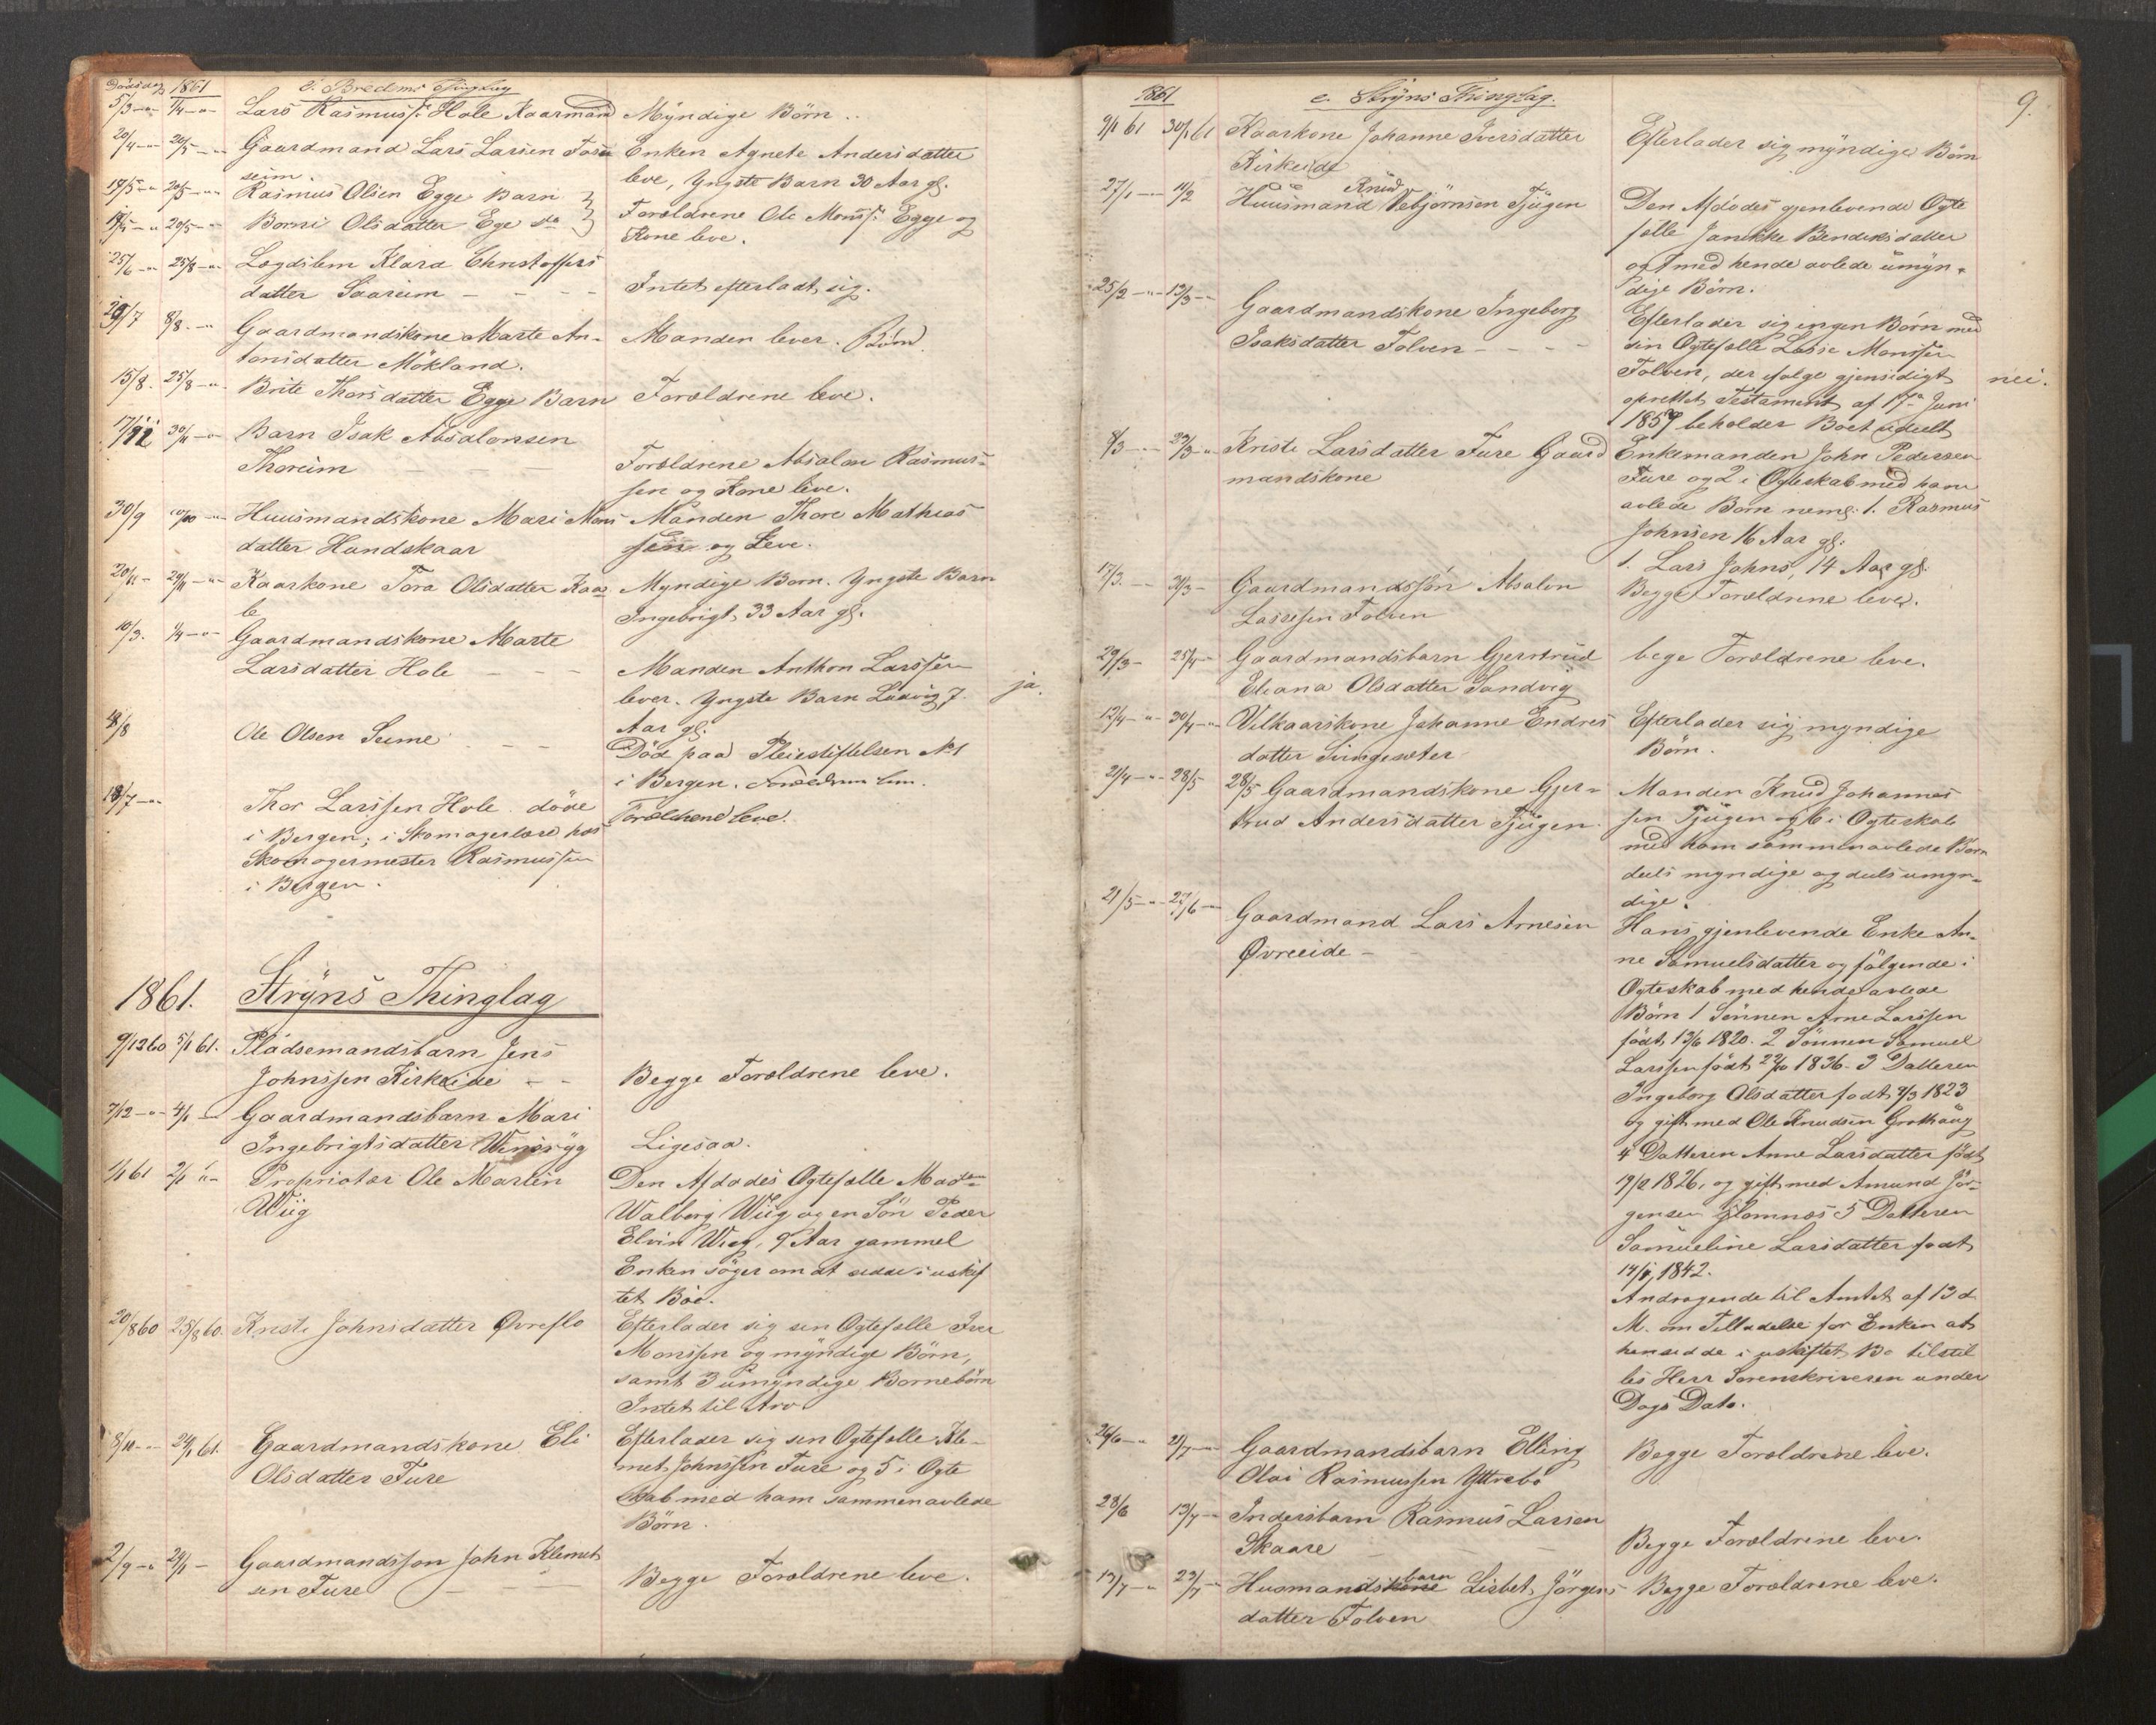 Dødsdag 1861 e. Bredens Thinglag
5/3 -"- 1/4 -"- Lars Rasmuss. Hole Kaarmand Myndige Børn ..
20/4 -"- 20/5 -"- Gaardmand Lars Larsen Tosse Enken Agnete Andersdatter
seim. leve, Yngste Barn 30 Aar gl.
19/5 -"- 20/5 -"- Rasmus Olsen Egge Barn } Forældrene Ole Monss. Egge og
20/5 -"- Borni Olsdatter Ege do } Kone leve.
25/6 -"- 25/8 -"- Lægdslem Klara Christoffers
datter Saarum - - - Intet efterladt sig.
29/7 8/8 -"- Gaardmandskone Marte An- Manden lever. Børn
tonsdatter Mökland.
15/8. 25/8 -"- Brite Thorsdatter Egge Barn Forældrene leve.
17/11 30/11 -"- Barn Isak Absalonsen
Thoreim - - - Forældrene Absalon Rasmus-
sen og Kone leve.
30/9 10/10 -"- Huusmandskone Mari Mons Manden Thore Mathias
datter Hundskaar sen og Leve.
20/11 - 29/11 -"- Kaarkone Tora Olsdatter Kaar Myndige Børn. Yngste Barn
le Ingebrigt, 33 Aar gl.
10/3. 1/4 -"- Gaardmandskone Marte
Larsdatter Hole - - - Manden Anthon Larssen
lever. Yngste Barn Ludvig 7. ja.
Aar gl.
4/8 Ole Olsen Seime - - - Död paa Pleiestiftelsen No 1
i Bergen. Forældrene leve.
18/7 -"- Thor Larssen Hole. døde Forældrene leve.
i Bergen; i Skomagerlære hos
Skomagermester Rasmussen
i Bergen.
1861. Stryns Thinglag
9/12 60 5/1 61. Pladsemandsbarn Jens
Johnssen Kirkeide - - Begge Forældrene leve.
7/12 -"- 4/1 -"- Gaardmandsbarn Mari
Ingebrigtsdatter Ligesaa.
1/1 61 2/1 "- Proprietær Ole Martin Den Afdødes Ogtefælle Madam
Wiig Walborg Wiig og en Søn Peder
Elvin Wiig, 9 Aar gammel
Enken söger om at sidde i uskif
tet Boe.
20/8 60 25/8 60. Kristi Johnsdatter Øvreflo Efterlader sig sin Ogtefælle Iver
Monssen og myndige Børn,
samt 3 umyndige Bornebörn
Intet til Arv
8/10 -"- 24/1 61. Gaardmandskone Eli Efterlader sig sin Ogtefælle Kle-
Olsdatter Fure met Johnssen Fure og 5 i Ogte
skab med ham sammenavlede
Börn.
2/9 -"- 24/1 - Gaardmandsson John Klemet
sen Fure - - Begge Forældrene leve.
1861 e. Stryns Thinglag. 9.
9/1 61 30/1 61 Kaarkone Johanne Iversdatter Efterlader sig myndige Børn
Kirkeide
27/1 -"- 11/2 Huusmand Knud Vebjørnsen Tjugen Den Afdødes gjenlevende Ogte
fælle Janikke Bendiksdatter
og 1 med hende avlede umyn-
dige Børn.
25/2 -"- 13/3 -"- Gaardmandskone Ingeborg Efterlader sig ingen Børn med
Isaksdatter Folven - - - - sin Ogtefælle Lasse Monssen
Folven, der ifølge gjensidigt nei.
oprettet Testament af 17de Juni
1857 beholder Boet udeelt
8/3 -"- 23/3 -"- Kristi Larsdatter Fure Gaard Enkemanden John Pedersen
mandskone Fure og 2 i Ogteskab med ham
avlede Børn neml: 1. Rasmus
Johnsen 16 Aar gl:
1. Lars Johns, 14 Aar gl.
17/3. -"- 31/3 - Gaardmandssön Absalon Begge Forældrene leve.
Lassesen Folven
29/3 - 25/4 -"- Gaardmandsbarn Gjerstrud bege Forældrene leve.
Eliana Olsdatter Sandvig
12/4 -"- 30/4 -"- Vilkaarskone Johanne Endres Efterlader sig myndige
datter Sungesæter Børn.
21/4 -"- 28/5 28/5 Gaardmandskone Gjer- Manden Knud Johannes
trud Andersdatter Tjugen. sen Tjugen og 6 i Ogteskab
med ham sammenavlede Børn
deels myndige og deels umyn-
dige.
21/5 -"- 27/6 -"- Gaardmand Lars Arnesen Hans gjenlevende Enke An-
Øvreeide - ne Samuelsdatter og følgende i
Ogteskab med hende avlede
Børn 1 Sønnen Arne Larssen
født 13/6 1820. 2 Sønnen Samuel
Larssen født 22/10 1836. 3 Datteren
Ingeborg Olsdatter født 9/3 1823
og gift med Ole Knudsen Grothaug
4 Datteren Anne Larsdatter født
19/2 1826, og gift med Amund Jör-
gensen Glomnæs 5 Datteren
Samueline Larsdatter født
14/1, 1842.
Andragende til Amtet af 13 d
M. om Tilladelse for Enken at
hensidde i uskiftet Bo tilstil
les Herr Sorenskriveren under
Dags Dato.
24/6 -"- 2/7 -"- Gaardmandsbarn Elling Begge Forældrene leve.
Olai Rasmussen Yttrebö
28/6 13/7 -"- Inderstbarn Rasmus Larsen
Skaare - - Begge Forældrene leve.
13/7 -"- 23/7 -"- Husmandskone barn Lisbet Jörgens Begge Forældrene leve.
datter Folven